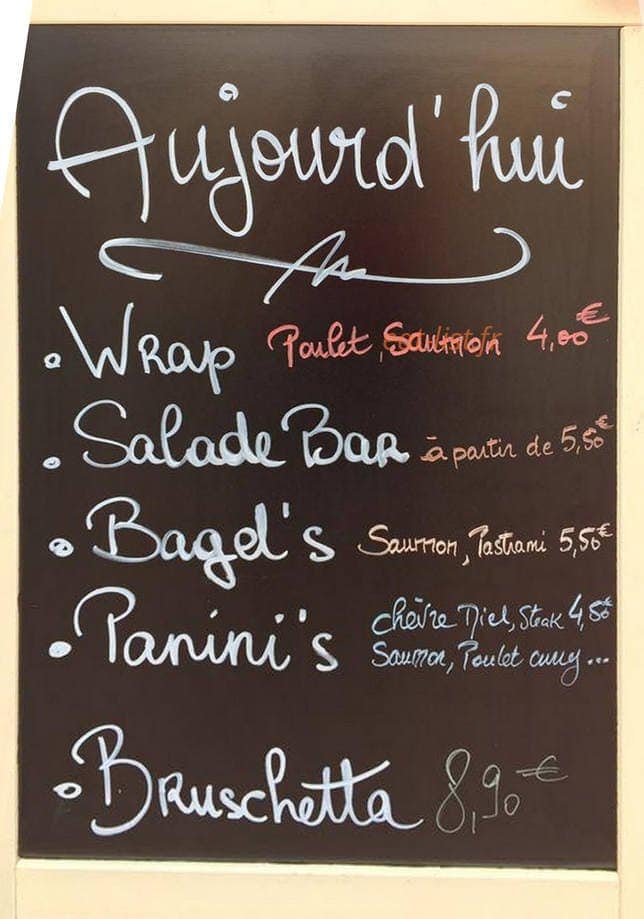 Aujourd'hui
• Wrap Poulet, Saumon 4,00€
• Salade Bar à partir de 5,50€
• Bagel's Saumon, Pastrami 5,50€
• Panini's chèvre Miel, Steak 4,50€
Saumon, Poulet curry...
• Bruschetta 8,90€